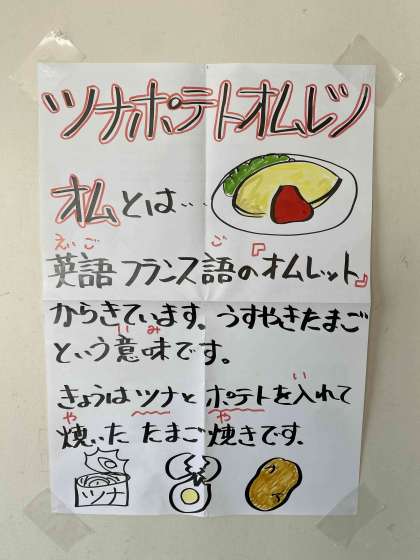 ツナポテトオムレツ
オムとは…
えいご ご
英語フランス語の『オムレット』
からきています。うすやきたまご
いみ
という意味です。
きょうはツナとポテトを入れて
い
や や
焼いた たまご焼きです。
ツナ